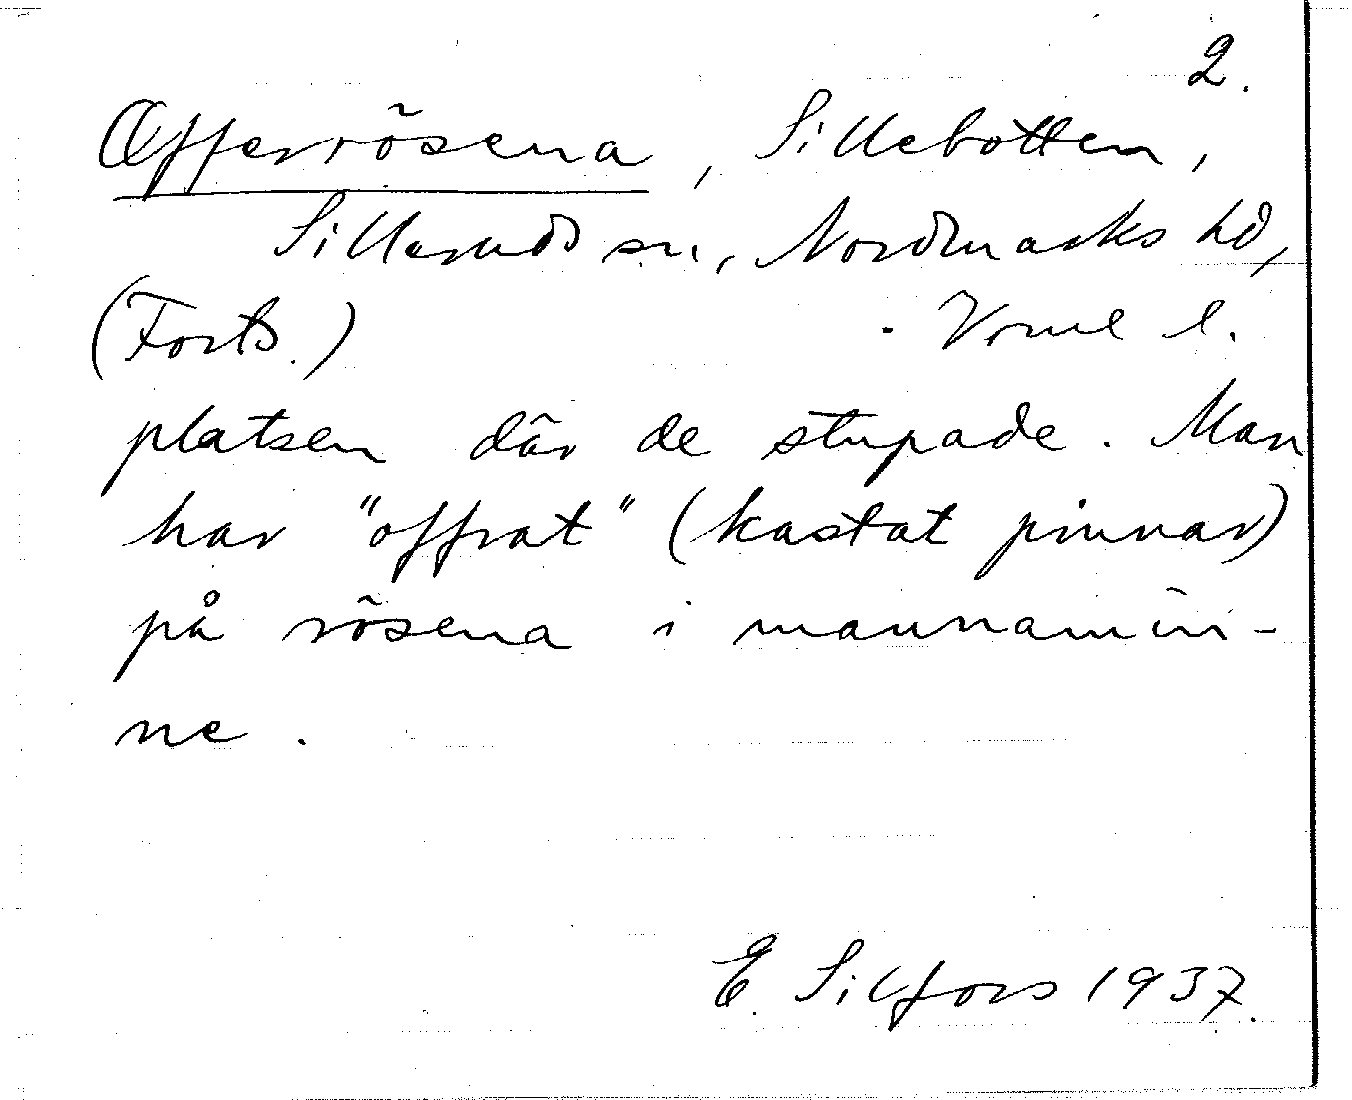 2.
Offerrösena, Sillebotten,
Silleruds sn., Nordmarks hd,
(Forts.) Vrml l.
platsen där de stupade. Man
har "offrat" (kastat pinnar)
på rösena i mannamin-
ne.
E. Silfors 1937.